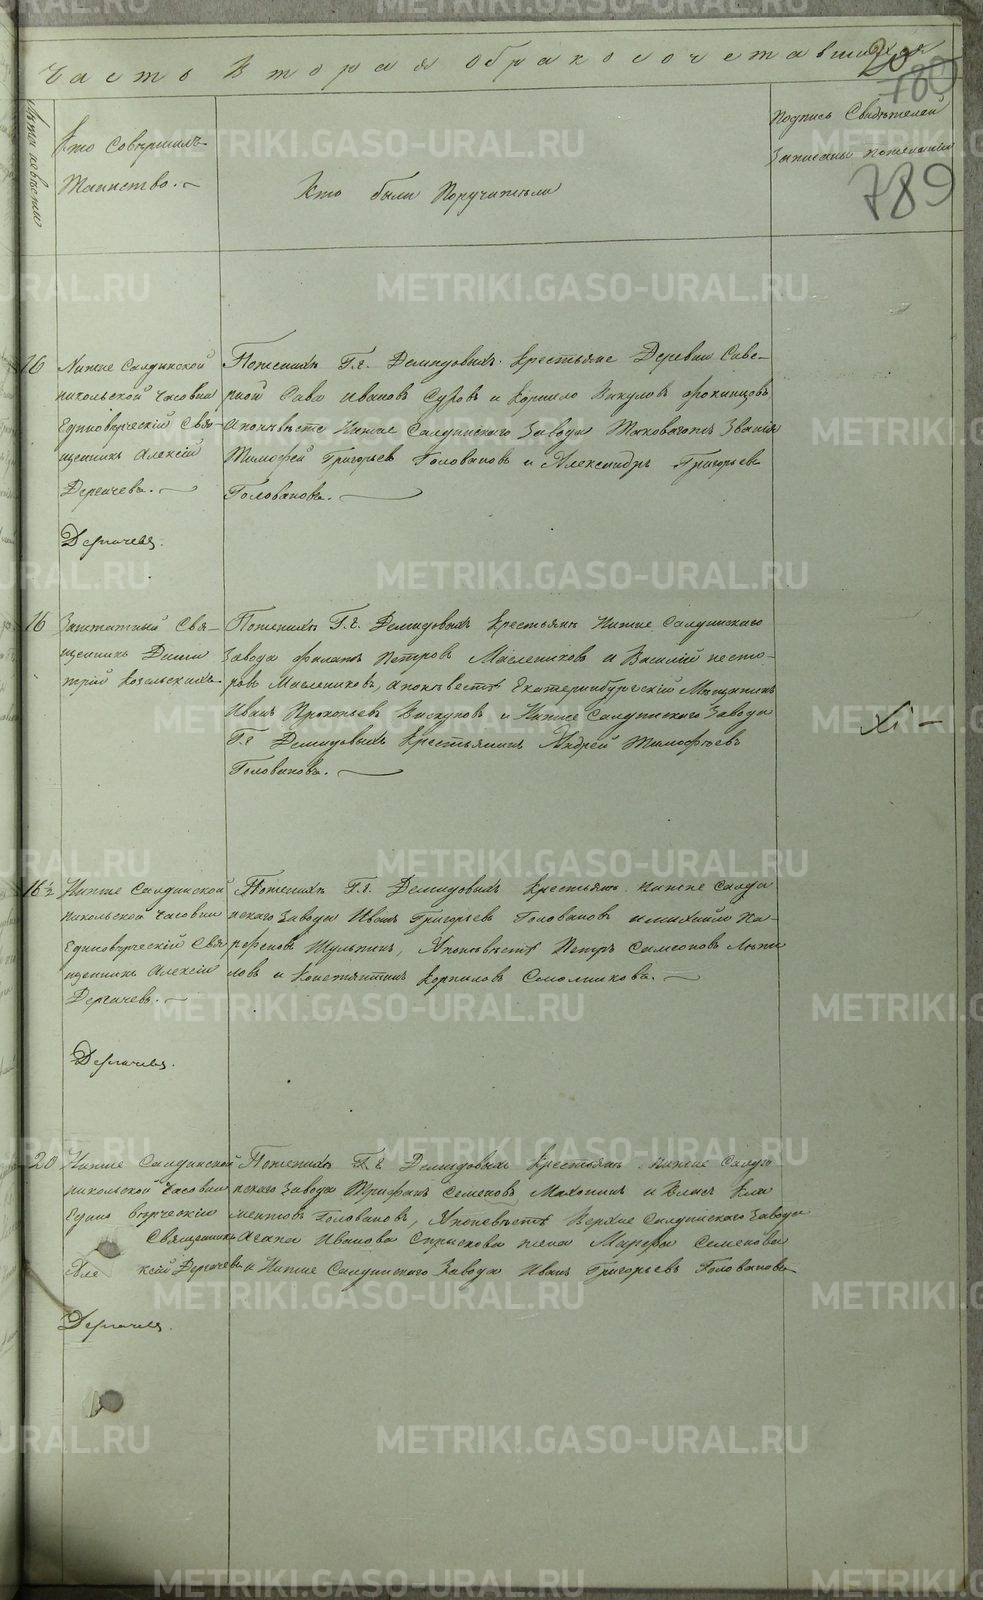 Часть Вторая о бракосочетавшихся
20
780
789
Лета невесты
Кто Совершилъ
Таинство.
Кто были Поручители
Подпись Свидѣтелей
Записаны пожеланию
16
Нижне Салдинской
никольской часовни
Единовѣрческiй Свя-
щенникъ Алексiй
Дергачевъ.
Дергачевъ.
Поженихѣ Г.г. Демидовыхъ Крестьяне Деревни Севе-
рной Сава Ивановъ Суровъ и Корнило Викуловъ
Апоневѣсте Нижне Салдинскаго Завода Таковагожъ Званiя
Тимофей Григорьев Головановъ и Александръ Григорьевъ
Головановъ.
16
Заштатный Свя-
щенникъ Дими
трiй Козельскихъ.
Поженихѣ Г.г. Демидовыхъ Крестьянъ Нижне Салдинскаго
Завода Филатъ Петровъ Маслениковъ и Василiй несто-
ровъ Маслениковъ, Апоневестѣ Екатеринбургскiй Мѣщанинъ
Иванъ Прокопьевъ и Нижне Салдинскаго Завода
Г.г. Демидовыхъ Крестьянинъ Андрей Тимофѣевъ
Головановъ.
16 ½
Нижне Салдинской
никольской Часовни
Единовѣрческiй Свя
щенникъ Алексiй
Дергачевъ.
Дергачевъ.
Поженихѣ Г.г. Демидовыхъ Крестьянъ нижне Салди
нскаго Завода Иванъ Григорьев Головановъ имихайло Па-
рфеновъ Шульпинъ, Апоневѣстѣ Петръ Самсоновъ
ловъ и Констянтинъ Корниловъ Соломниковъ.
20
Нижне Салдинской
никольской Часовни
Едино вѣрческiй
Священникъ
Але ксѣй Дергачевъ
Дергачевъ.
Поженихѣ Г.г. Демидовыхъ Крестьянъ нижне Салди
нскаго Завода Трифанъ Семеновъ Махонинъ и Власъ Кли
ментовъ Головановъ, Апоневѣстѣ Верхне Салдинскаго Завода
Агапа Иванова жена Марфа Семенова
и Нижне Салдинскаго Завода Иванъ Григорьевъ Головановъ
METRIKI.GASO-URAL.RU